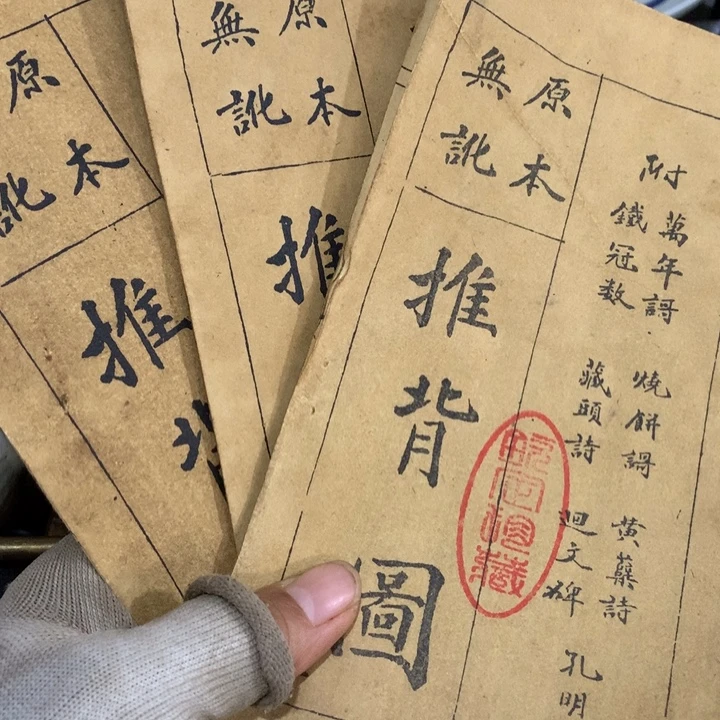 附
萬年謌 燒餅謌 黄蘗詩
鐵冠数 藏頭詩 迴文碑
孔明
原本
無訛
推背圖
原本
無訛
推
原本
訛
推背